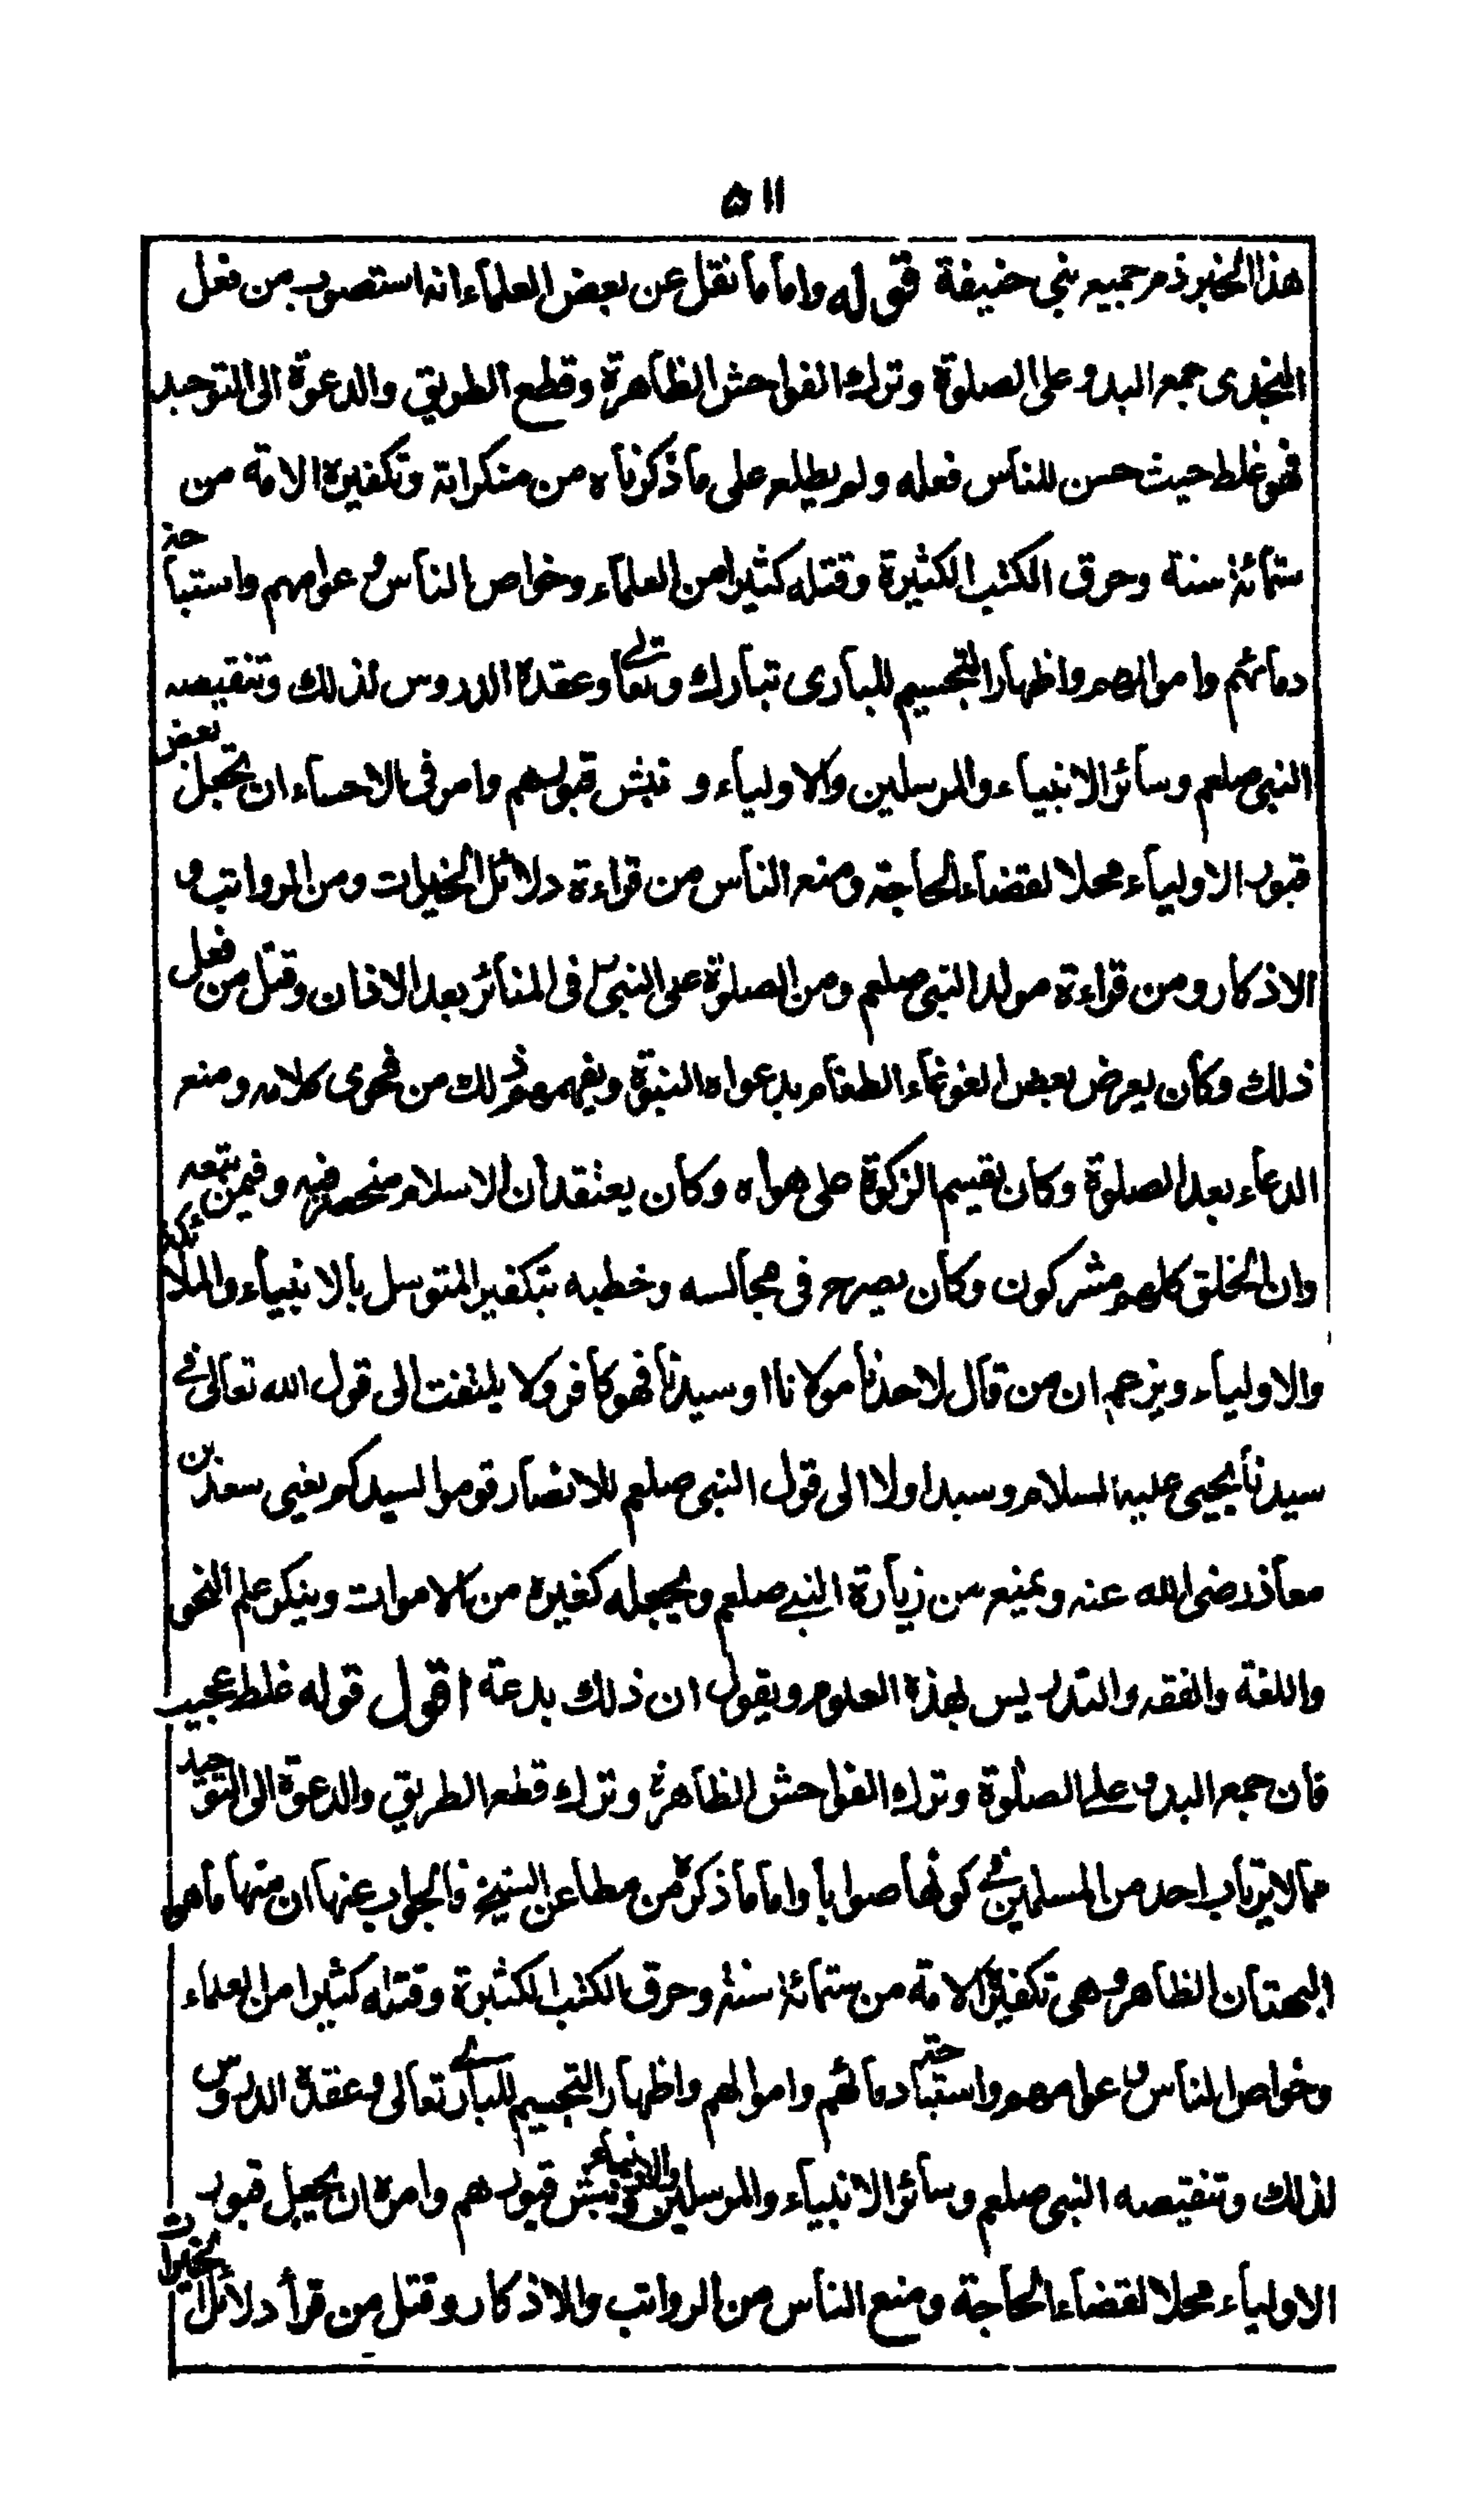 ٥١١
هذا الخبر ذم جميع بني حنيفة قوله واما ما نقل عن بعض العلماء انه استصوب من فعل
النجدى جمع البدو على الصلوة وترك الفواحش الظاهرة وقطع الطريق والدعوة الى التوحيد
فهو غلط حيث حسن للناس فعله ولم يطلع على ما ذكرناه من منكراته وتكفيره الامة من
ستمائة سنة وحرق الكتب الكثيرة وقتله كثيرا من العلماء وخواص الناس و عوامهم واستباحة
دمائهم واموالهم واظهار التجسيم للبارى تبارك وتعالى وعقدة الدروس لذلك وتنقيصه
النبى صلعم وسائر الانبياء والمرسلين والاولياء و نبش قبورهم وامر فى الاحساء ان تجعل بعض
قبور الاولياء محلا لقضاء الحاجة ومنع الناس من قراءة دلائل الخيرات ومن الرواتب و
الاذكار ومن قراءة مولد النبى صلعم ومن الصلوة على النبى فى المنائر بعد الاذان وقتل من فعل
ذلك وكان يعرض بعض الغوغاء الطغام بدعواه النبوة ويفهمهم ذلك من فحوى كلامه ومنع
الدعاء بعد الصلوة وكان يقسيم الزكوة على هواه وكان يعتقد ان الاسلام منحصر فيه وفيمن تبعه
وان الخلق كلهم مشركون وكان يصرح فى مجالسه وخطبه بتكفير المتوسل بالانبياء والملائكة
والاولياء ويزعم ان من قال لاحد مولانا او سيدنا فهو كافر ولا يلتفت الى قول الله تعالى في
سيدنا يحيى عليه السلام وسيدا ولا الى قول النبى صلعم للانصار قوموا لسيدكم يعنى سعد بن
معاذ رضى الله عنه ويمنع من زيارة النبي صلعم ويجعله كغيره من الاموات وينكر علم النحو
واللغة والفقه والتدريس لهذه العلوم ويقول ان ذلك بدعة اقول قوله غلط عجيب
فان جمع البدو على الصلوة وترك الفواحش الظاهرة وترك قطع الطريق والدعوة الى التوحيد
مما لا يرتاب احد من المسلمين في كونها صوابا واما ما ذكره من مطاعن الشيخ فالجواب عنها ان منها ما هو
البهتان الظاهر وهى تكفيره الامة من ستمائة سنة وحرق الكتب الكثيرة وقتله كثيرا من العلماء
وخواص الناس و عوامهم واستباحة دمائهم واموالهم واظهار التجسيم للبارے تعالى وعقدة الدروس
لذلك وتنقيصه النبى صلعم وسائر الانبياء والمرسلين والاولياء ونبش قبورهم وامره ان يجعل قبور
الاولياء محلا لقضاء الحاجة ومنع الناس من الرواتب والاذكار وقتل من قرأ دلائل الخيرات